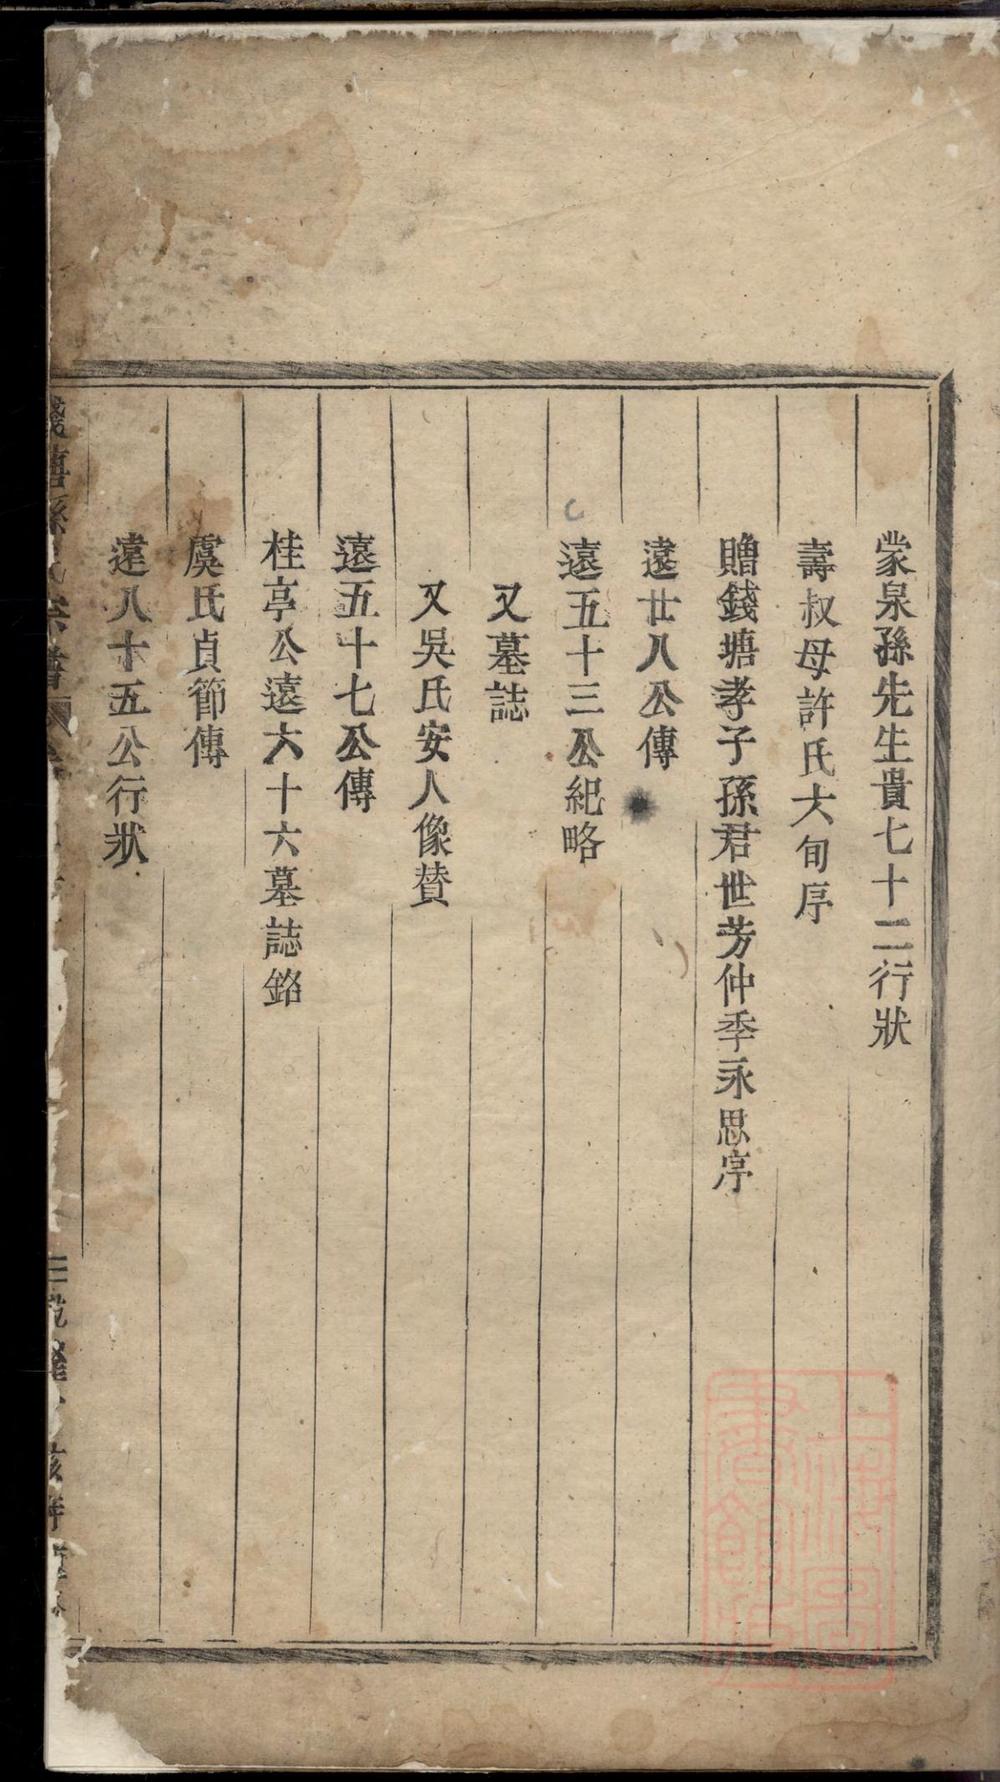 蒙泉孫先生貴七十二行狀
壽叔母許氏大旬序
贈錢塘孝子孫君世芳仲季永思序
遠廿八公傳
遠五十三公紀略
又墓誌
又吳氏安人像贊
遠五十七公傳
桂亭公遠六十六墓誌銘
虞氏貞節傳
遠八十五公行狀
上海圖書館藏